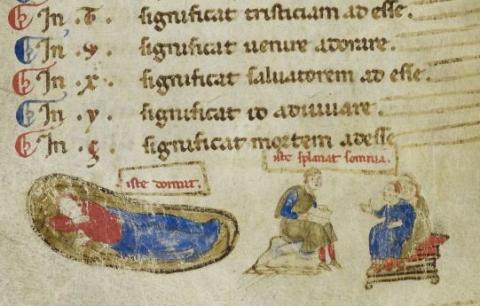 In . t . significat tristiciam ad esse.
In . v . significat uenire adorare.
In . x . significat saluatorem ad esse.
In . y . significat id adiuuare.
In . z . significat mortem adesse
iste splanat somnia.
iste dormit.